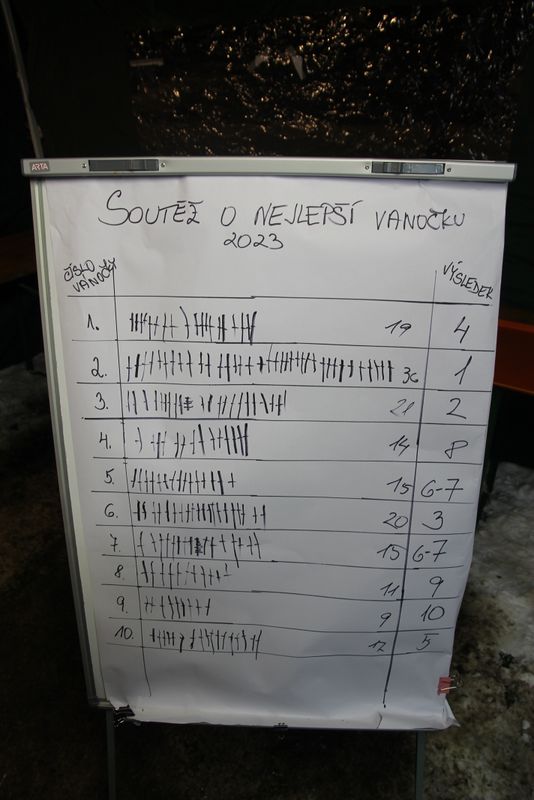 ARTA
SOUTĚŽ O NEJLEPŠÍ VANOČKU
2023
ČÍSLO VANOČKY VÝSLEDEK
1. 19 4
2. 36 1
3. 21 2
4. 14 8
5. 15 6-7
6. 20 3
7. 15 6-7
8. 11 9
9. 9 10
10. 17 5